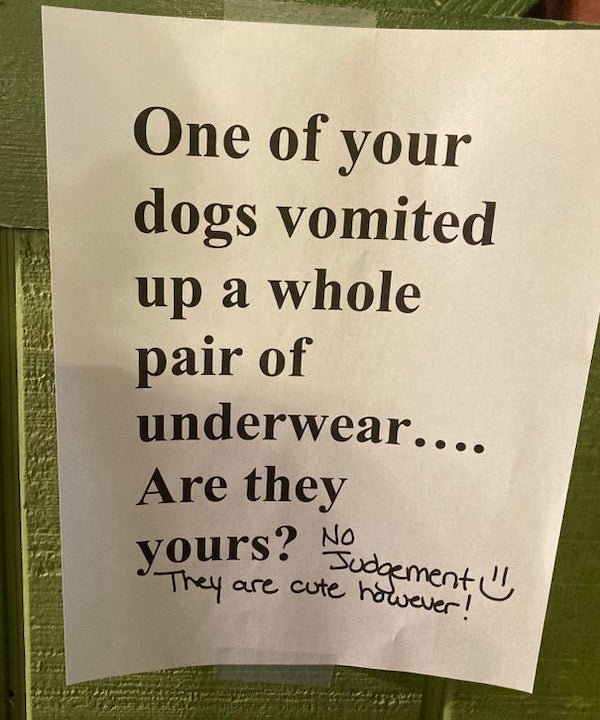 One of your
dogs vomited
up a whole
pair of
underwear....
Are they
yours? No
Judgement
They are cute however!